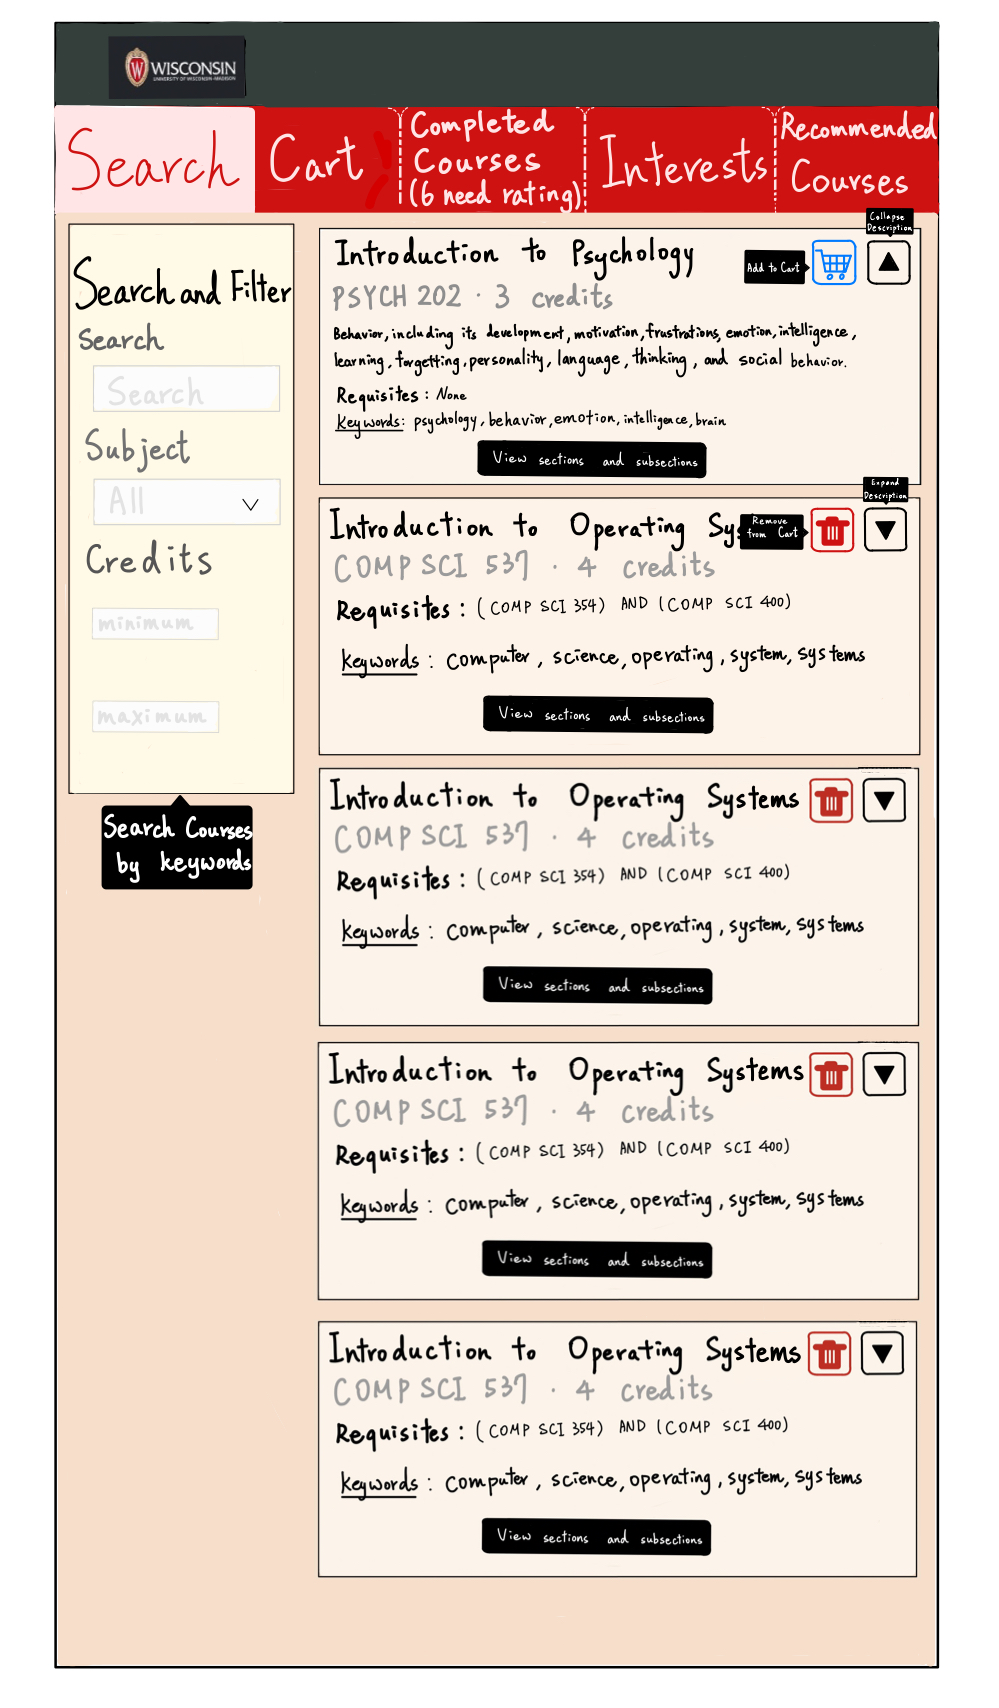 WISCONSIN
UNIVERSITY OF WISCONSIN-MADISON
Search
Cart
Completed
Courses
(6 need rating)
Interests
Recommended
Courses
Search and Filter
Search
Search
Subject
All
Credits
minimum
maximum
Search Courses
by keywords
Collapse
Description
Introduction to Psychology
Add to Cart
PSYCH 202 · 3 credits
Behavior, including its development, motivation, frustrations, emotion, intelligence,
learning, forgetting, personality, language, thinking, and social behavior.
Requisites: None
Keywords: psychology, behavior, emotion, intelligence, brain
View sections and subsections
Expand
Description
Introduction to Operating Sys
Remove
from Cart
COMP SCI 537 · 4 credits
Requisites: (COMP SCI 354) AND (COMP SCI 400)
Keywords: computer, science, operating, system, systems
View sections and subsections
Introduction to Operating Systems
COMP SCI 537 · 4 credits
Requisites: (COMP SCI 354) AND (COMP SCI 400)
Keywords: computer, science, operating, system, systems
View sections and subsections
Introduction to Operating Systems
COMP SCI 537 · 4 credits
Requisites: (COMP SCI 354) AND (COMP SCI 400)
Keywords: computer, science, operating, system, systems
View sections and subsections
Introduction to Operating Systems
COMP SCI 537 · 4 credits
Requisites: (COMP SCI 354) AND (COMP SCI 400)
Keywords: computer, science, operating, system, systems
View sections and subsections